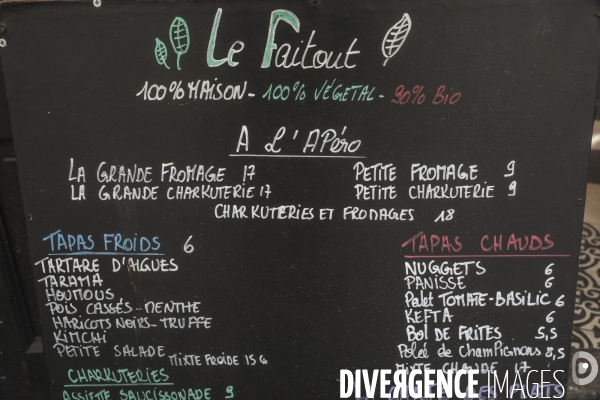 Le Faitout
100% MAISON - 100% VÉGÉTAL - 90% BIO
A L'APÉRO
LA GRANDE FROMAGE 17 PETITE FROMAGE 9
LA GRANDE CHARKUTERIE 17 PETITE CHARKUTERIE 9
CHARKUTERIES ET FROMAGES 18
TAPAS FROIDS 6
TARTARE D'ALGUES
TARAMA
HOUMOUS
POIS CASSÉS - MENTHE
HARICOTS NOIRS - TRUFFE
KIMCHI
PETITE SALADE
MIXTE FROIDE 15
CHARKUTERIES
ASSIETTE SAUCISSONNADE 9
TAPAS CHAUDS
NUGGETS 6
PANISSE 6
Palet TOMATE-BASILIC 6
KEFTA 6
BOL DE FRITES 5,5
Poêlée de Champignons 8,5
MIXTE CHAUDE 17
DIVERGENCE IMAGES